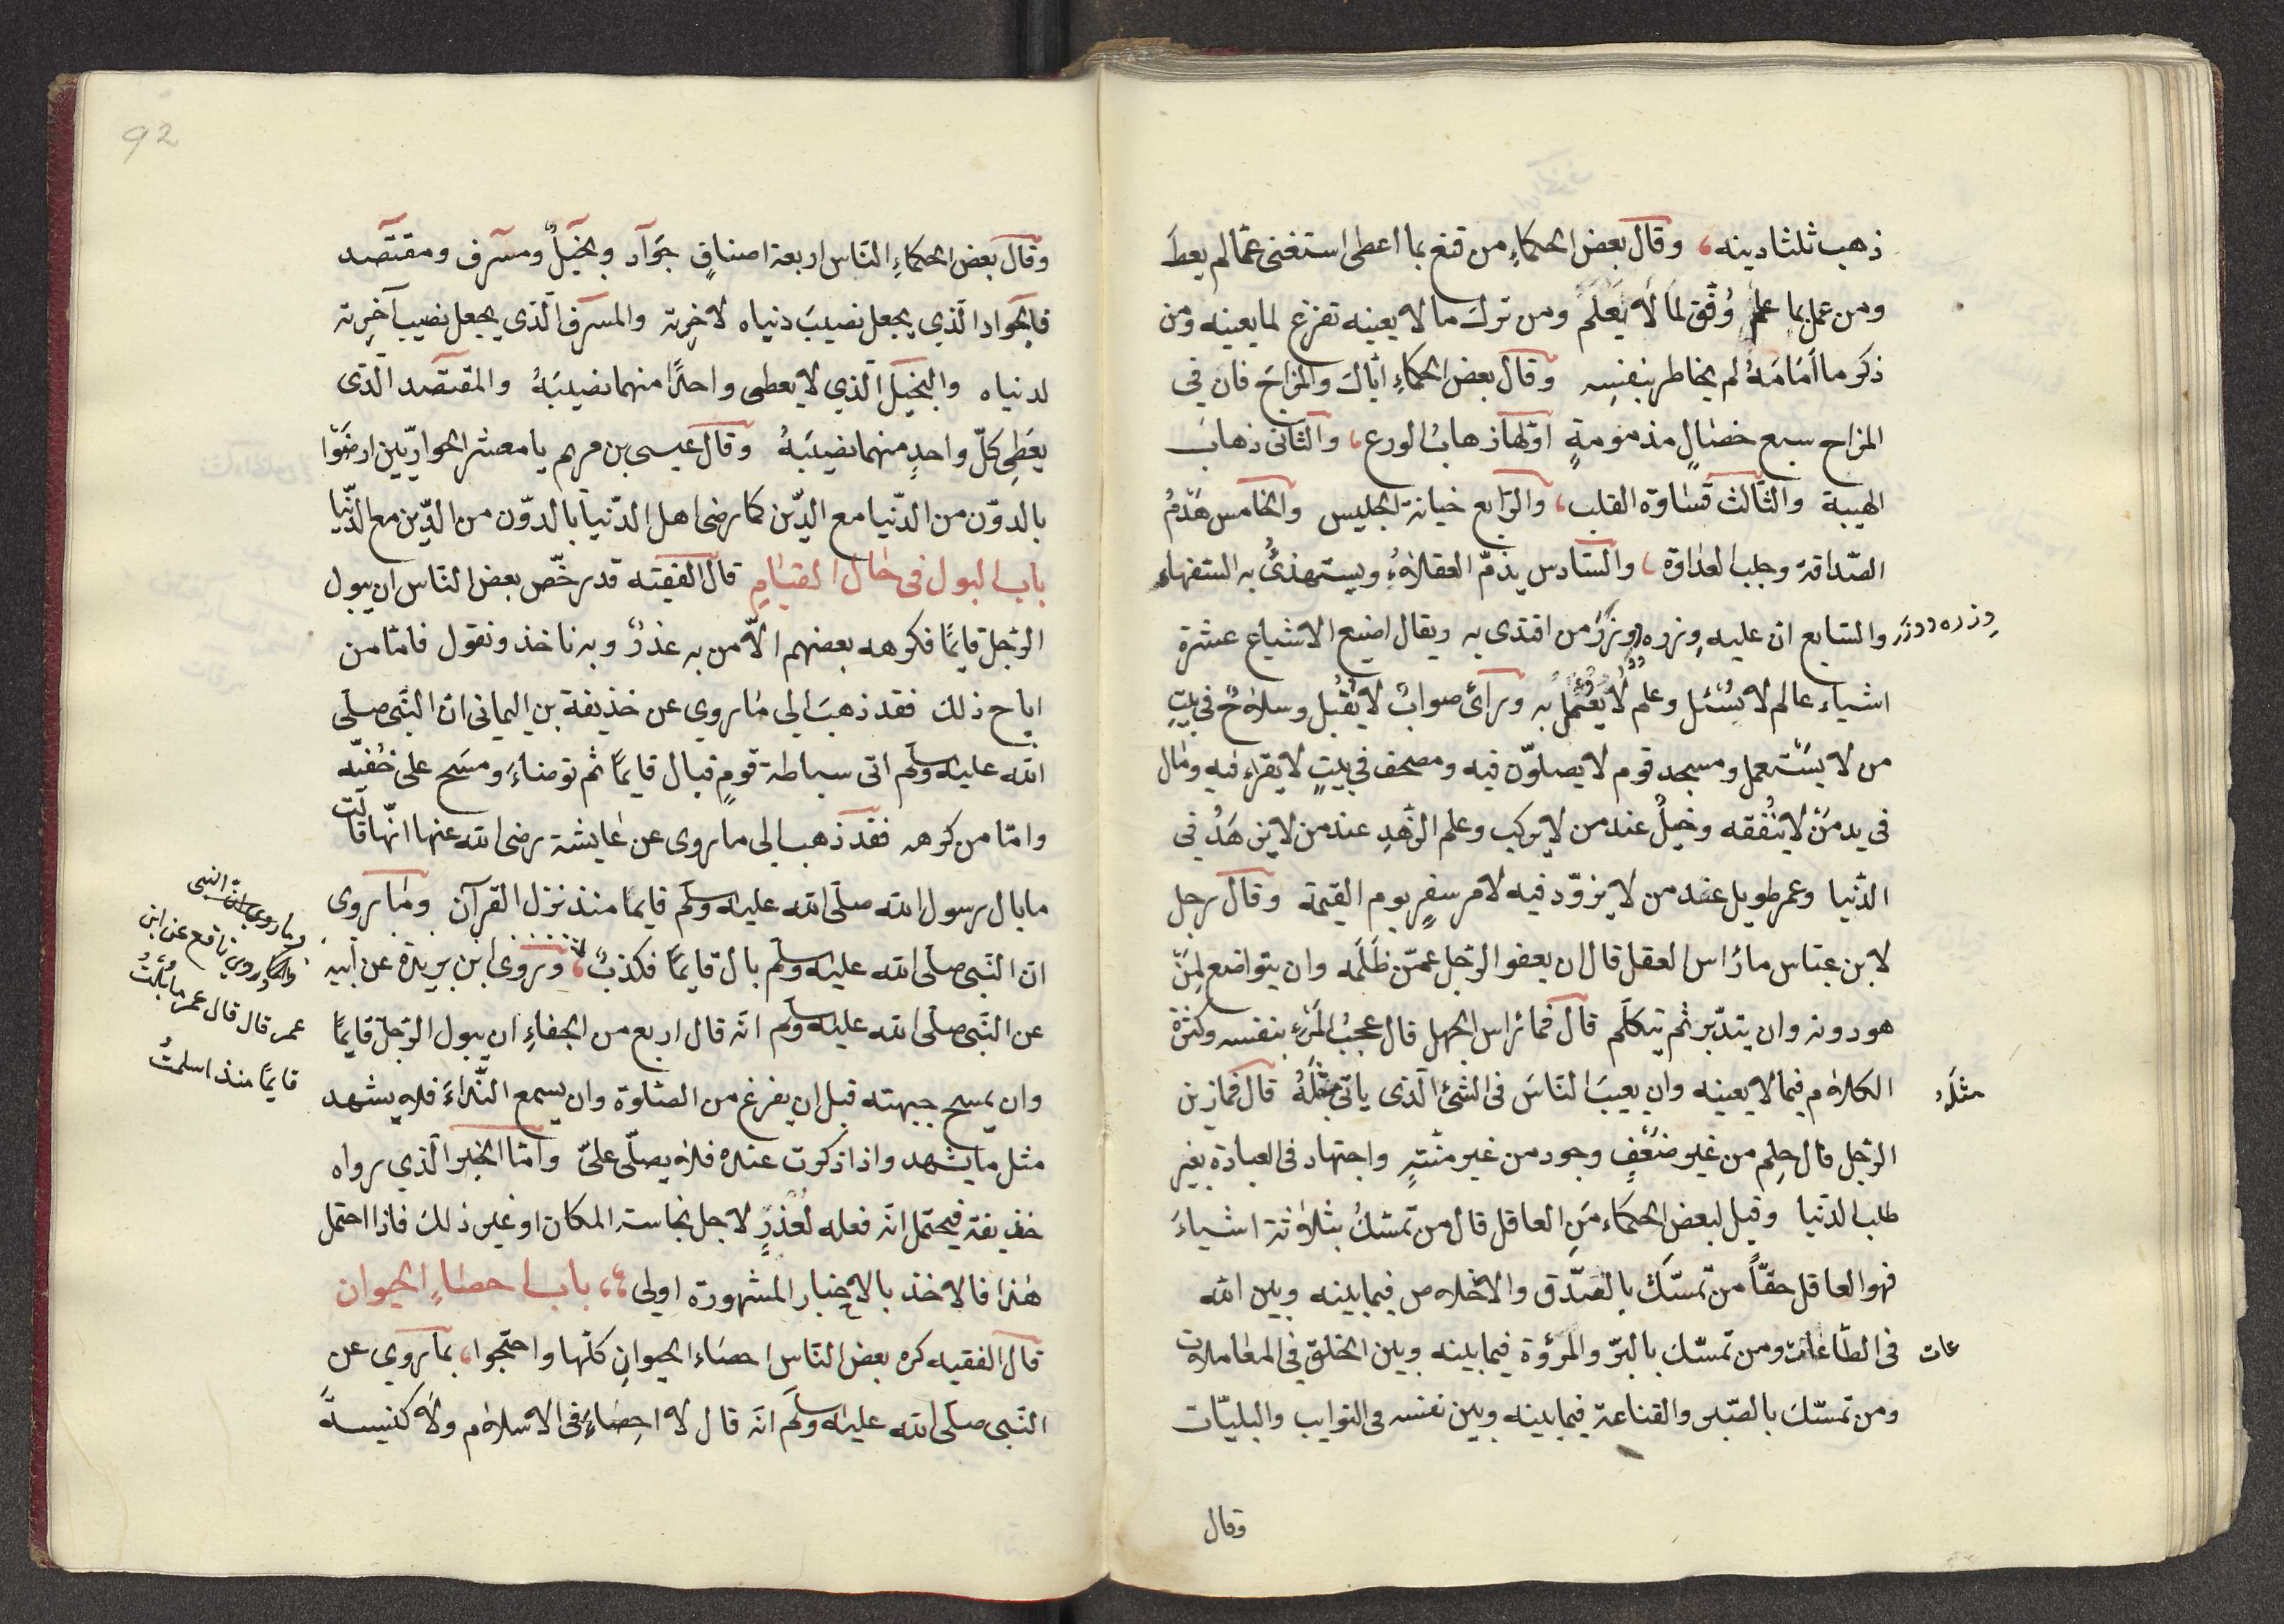 ذهب ثلثا دينه، وقال بعض الحكماءِ من قنع بما اعطى استغنى عمّا لم يعطَ
ومن عمل بما علم وُفّق لما لا يَعْلَم ومن ترك ما لا يعينه تفرّغ لما يعينه ومن
ذكر ما اَمَامَهُ لم يخاطر بنفسِه وقال بعض الحكماءِ ايّاك والمزاحَ فان في
المزاح سبع خصالٍ مذمومةٍ اوّلها ذهابُ الورع، والثانى ذهابُ
الهيبة والثّالث قساوة القلب، والرّابع خيانة الجليس والخامس هَدْمُ
الصّداقة وجلب العداوة، والسّادس يذمّ العقلاءُ ويستهذئُ به السّفهاء
والسّابع ان عليه وِزره ووِزرَ من اقتدى به ويقال اضيع الاشياع عشرة
وِزره ووزر
اشياء عالم لا يُسْئل وعلم لا يُعْمَلُ به ورأىُ صوابٌ لا يُقْبل وسلاحٌ في بيتِ
من لا يَسْتعمل ومسجد قوم لا يصلّون فيه ومصحف في بيتٍ لا يقراء فيه ومال
في يد مَنْ لا يُنْفقه وخيلٌ عند من لا يركب وعلم الزّهدِ عند من لا يزهَدُ في
الدّنيا وعمر طويل عند من لا يزوّد فيه لامر سفرٍ يوم القيمة وقال رجل
لابن عبّاس ما رَاس العقل قال ان يعفو الرّجل عمّن ظَلَمه وان يتواضع لِمَنْ
هو دونه وان يتدّبر ثم يتكلّم قال فما رَاس الجهل قال عجبُ المَرْءِ بنفسه وكثرة
الكلام فيما لا يعينه وان يعيبَ النّاسَ فى الشئ الّذى ياتي مِثْلَهُ قال فما زين
مثلَه
الرّجل قال حِلم من غير ضَعْفٍ وجود من غير منّتٍ واجتهاد فى العبادة بغير
طلب الدّنيا وقيل لبعض الحكماء مَنِ العاقل قال من تمسّكُ بثلاثة اشياءَ
فهو العاقل حقّاً من تمسّك بالصّدق والاخلاص فيما بينه وبين الله
فى الطّاعات ومن تمسّك بالبرّ والمرؤة فيما بينه وبين الخلق فى المعاملات
عات
ومن تمسّك بالصّبر والقناعة فيما بينه وبين نفسه فى النوايب والبليّات
وقال
92
وقال بعض الحكماءِ النّاس اربعة اصنافٍ جَوَاد وبخيلٌ ومسرف ومقتصد
فالجواد الّذي يجعل نصيبَ دنياه لاخِرته والمسرف الّذى يجعل نصيب آخِرته
لدنياه والبخيل الّذي لا يعطى واحدًا منهما نصيبَهُ والمقتصد الّذى
يعَطِى كلّ واحدٍ منهما نصيبَهُ وقال عيسى بن مريم يا معشر الحواريّين ارضَوْا
بالدوّن من الدّنيا مع الدّين كما رضى اهل الدّنيا بالدوّن من الدّين مع الدّنيا
باب البول فى حال القيامِ قال الفقيه قد رخّص بعض النّاس ان يبول
الرّجل قايمًا فكرهه بعضهم الّا من به عذرٌ وبه ناخذ ونقول فامّا من
اباح ذلك فقد ذهبَ الى ما روي عن خذيفة بن اليمانى انّ النّبى صلّى
الله عليه وسلّم اتى سباطة قومٍ فبال قايمًا ثم توضاءَ ومسَح على خُفيّه
وامّا من كرهه فقد ذهب الى ما روى عن عايشة رضى الله عنها انّها قالت
ما بال رسول الله صلّى الله عليه وسلّم قايمًا منذ نزل القرآن وما روى
انّ النّبى صلّى الله عليه وسلّم بال قايمًا فكذبٌ، وروى ابن بريدة عن ابيه
وما روى انّ النبى
وما روى نافع عن ابن
عمر قال قال عمر ما بُلْتُ
قايمًا منذ اسلمتُ
عن النّبى صلّى الله عليه وسلّم انّه قال اربع من الجفاءِ ان يبول الرّجل قايمًا
وان يمسح جبهته قبل ان يفرغ من الصّلوة وان يسمع النّداءَ فلا يشهد
مثل ما يشهد واذا ذكرت عنده فلا يصلّى علىّ وامّا الخبر الّذي رواه
خذيفة فيحتمل انّه فعله لعُذْرٍ لاجل نجاسة المكان او غير ذلك فاذا احتمل
هذا فالاخذ بالاخبار المشهورة اولى، باب احصاءِ الحيوان
قال الفقيه كره بعض النّاس احصاء الحيوانِ كلّها واحتجّوا، بما روي عن
النّبى صلّى الله عليه وسلّم انّه قال لا احِصاءَ فى الاسلام ولا كنيسةً